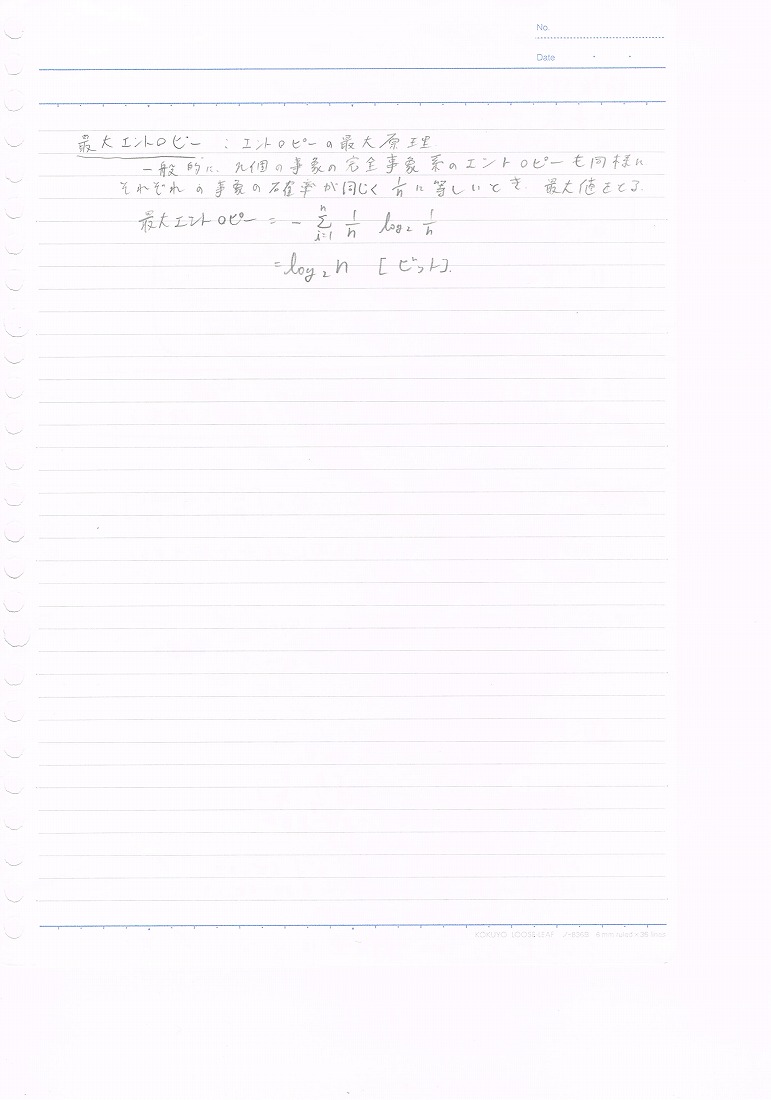 No.
Date
最大エントロピー : エントロピーの最大原理
一般的に、n個の事象の完全事象系のエントロピーも同様に
それぞれの事象の確率が同じく 1/n に等しいとき、最大値をとる.
最大エントロピー = - Σ_{i=1}^{n} 1/n log₂ 1/n
= log₂ n [ビット].
KOKUYO LOOSE-LEAF ノ-836B 6 mm ruled × 36 lines